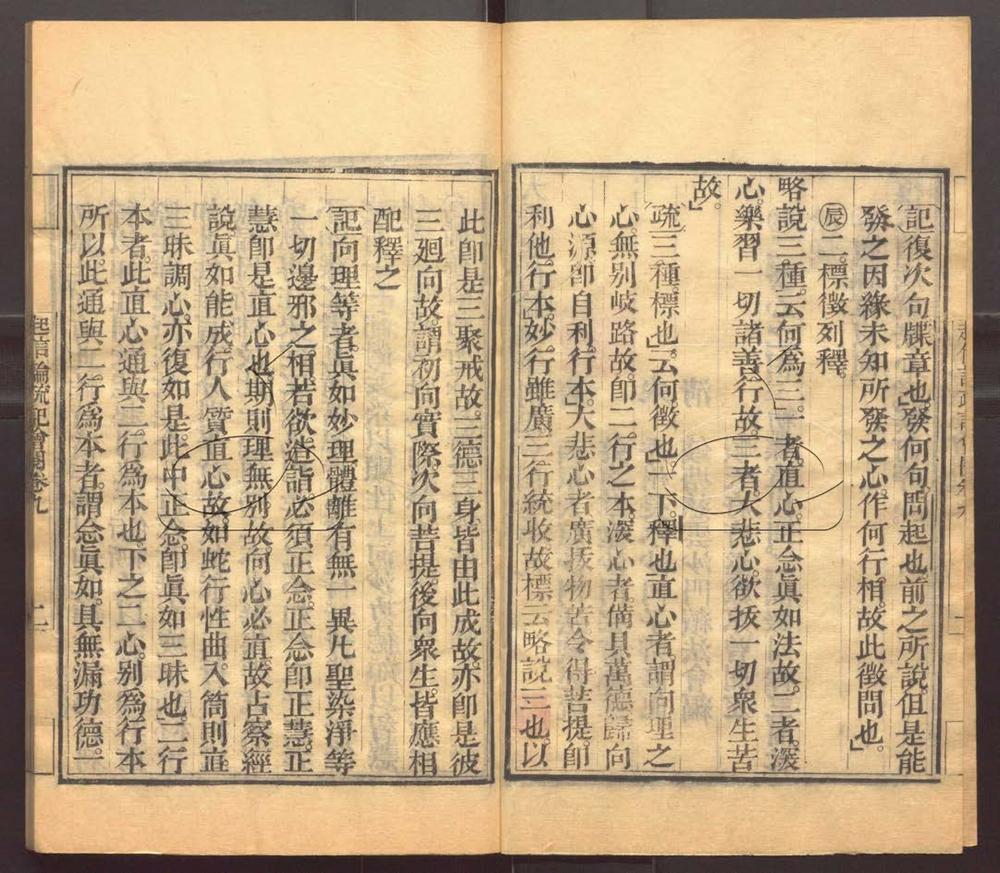 記復次句牒章也。發何句問起也前之所說但是能
發之因緣未知所發之心。作何行相。故此徵問也。」
辰二。標徵列釋。
略說三種。云何爲三。一者。直心。正念眞如法故。二者。深
心。樂習一切諸善行故。三者。大悲心。欲拔一切衆生苦
故。」
疏三種。標也。云何徵也。一下。釋也直心者。謂向理之
心。無別岐路故。卽二行之本。深心者。備具萬德。歸向
心源。卽自利行本。大悲心者。廣拔物苦令得菩提。卽
利他。行本。妙行雖廣。三行統收。故標云略說三也。以
此卽是三聚戒故。三德三身。皆由此成故。亦卽是彼
三迴向故。謂初向實際。次向菩提。後向衆生。皆應相
配釋之
記向理等者。眞如妙理。體離有無一異凡聖染淨等
一切邊邪之相。若欲造詣。必須正念。正念卽正慧。正
慧卽是直心也。期則理無別故。向心必直。故占察經
說。眞如能成行人質直心故。如蛇行性曲。入筒則直
三昧調心。亦復如是。此中正念。卽眞如三昧也。二行
本者。此直心通與二行爲本也。下之二心。別爲行本
所以此通與二行爲本者。謂念眞如。具無漏功德。一
起信論疏記會閱卷九
二